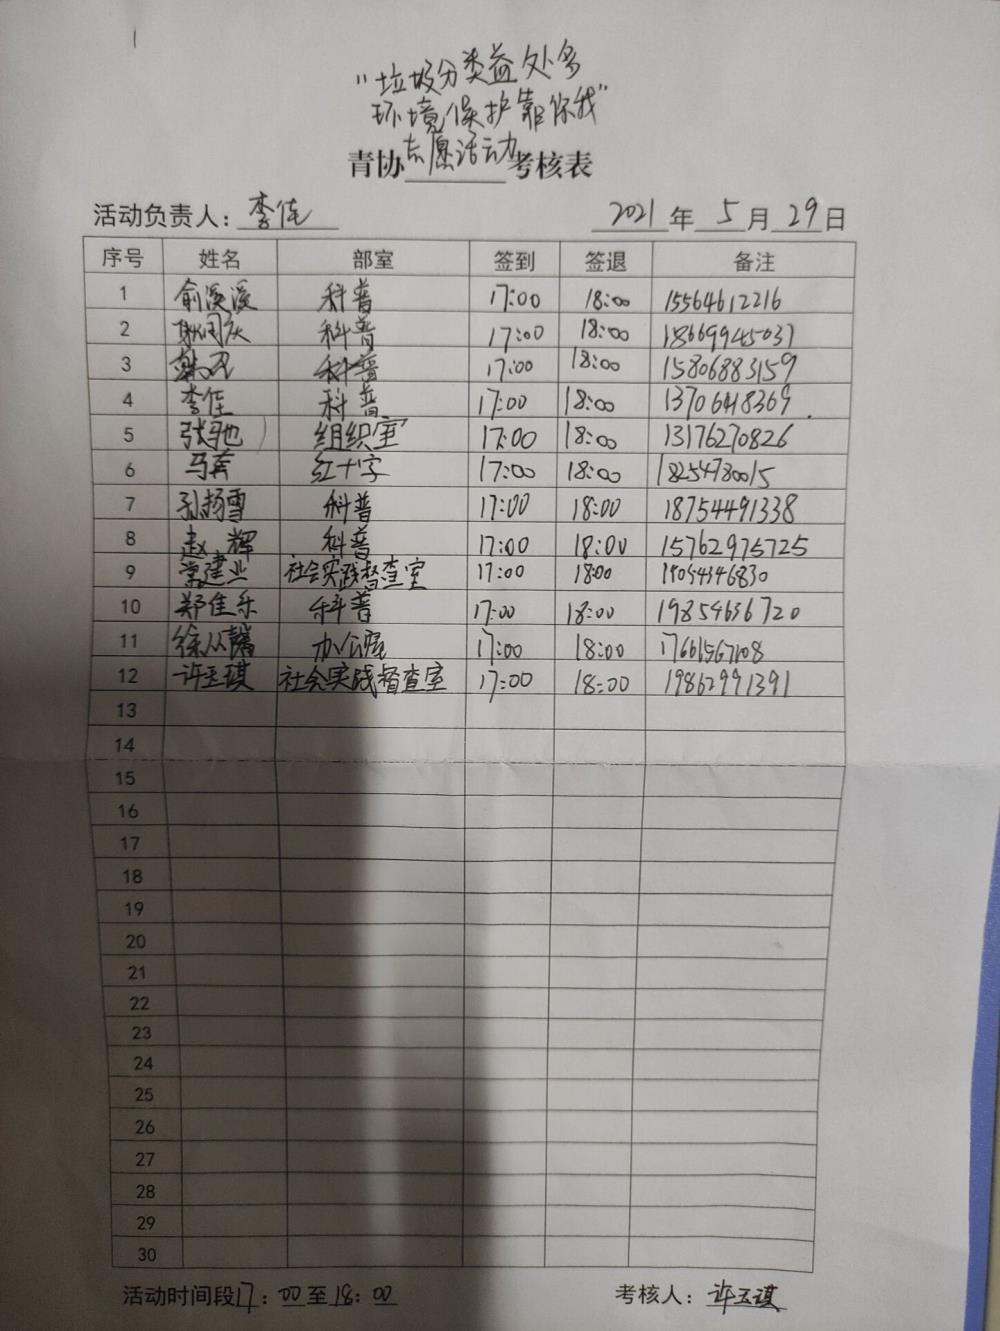 "垃圾分类益处多
环境保护靠你我"
青协志愿活动考核表
活动负责人：李佳 2021年5月29日
序号 姓名 部室 签到 签退 备注
1 俞溪溪 科普 17:00 18:00 15564612216
2 科普 17:00 18:00 18669945031
3 科普 17:00 18:00 15806883159
4 李佳 科普 17:00 18:00 13706418369
5 张驰 组织室 17:00 18:00 13176270826
6 马奔 红十字 17:00 18:00 18254780015
7 孙扬雪 科普 17:00 18:00 18754491338
8 赵辉 科普 17:00 18:00 15762975725
9 常建业 社会实践督查室 17:00 18:00
10 郑佳乐 科普 17:00 18:00 19854636720
11 徐从 办公室 17:00 18:00 17661567108
12 许玉琪 社会实践督查室 17:00 18:00 19862991391
13
14
15
16
17
18
19
20
21
22
23
24
25
26
27
28
29
30
活动时间段17：00至18：00 考核人：许玉琪